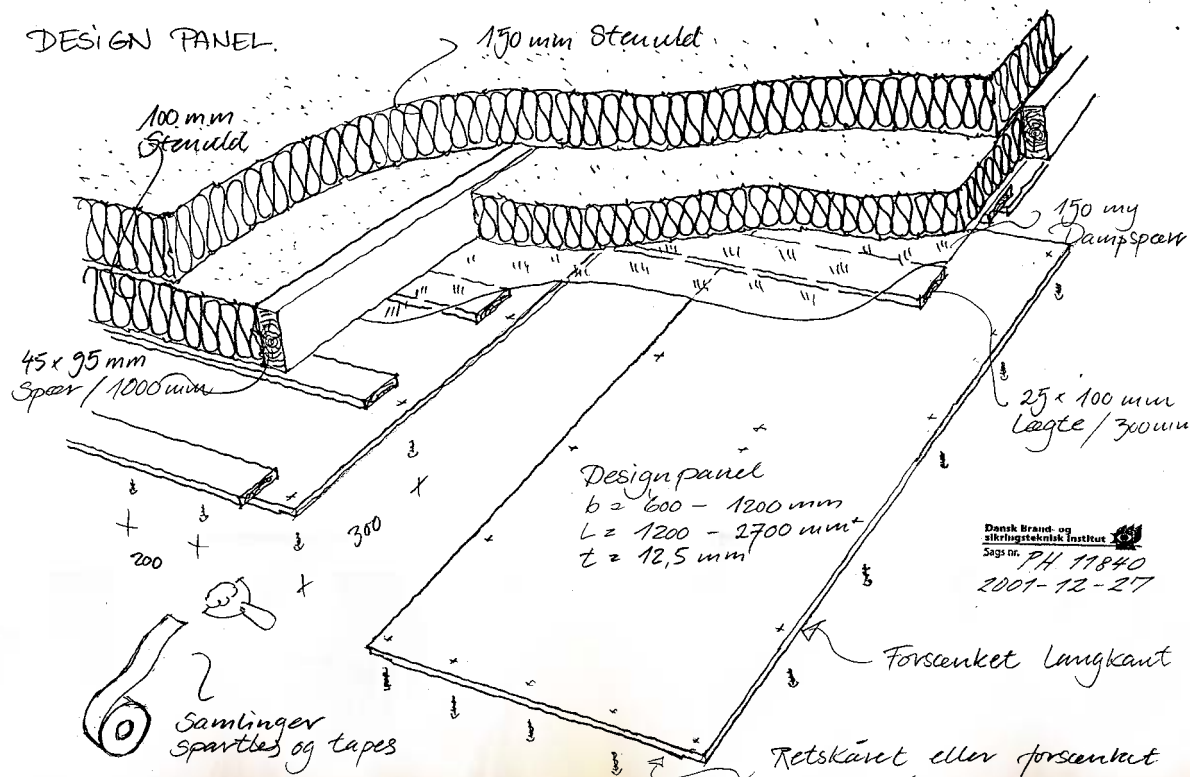 DESIGN PANEL.
150 mm Stenuld
100 mm
Stenuld
150 my
Dampspærr
45 x 95 mm
Spær / 1000 mm
25 x 100 mm
Lægte / 300 mm
Designpanel
b = 600 - 1200 mm
L = 1200 - 2700 mm
t = 12,5 mm
300
200
Dansk Brand- og
sikringsteknisk Institut
Sags nr. PH 11840
2001-12-27
Forsænket Langkant
Samlinger
spartles og tapes
Retskåret eller forsænket